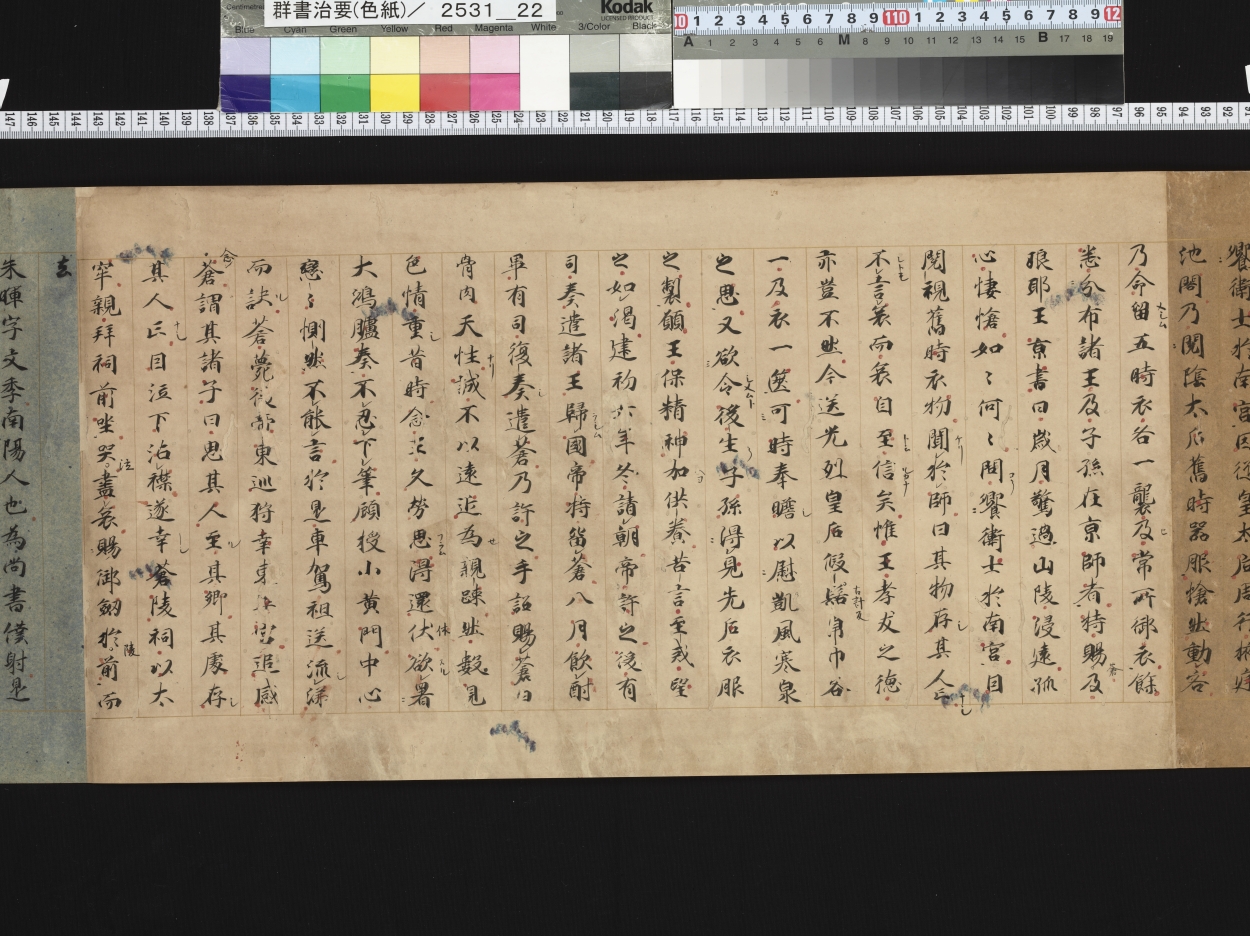 群書治要(色紙)／ 2531__22
Kodak
LICENSED PRODUCT
Blue Cyan Green Yellow Red Magenta White 3/Color Black
饗衛士於南宮因従皇太后周行掖庭
池閣乃閲陰太后舊時器服愴然動容
乃命留五時衣各一襲及常所御衣餘
悉分布諸王及子孫在京師者特賜及
琅耶王京書曰歲月驚過山陵浸遠孤
心悽愴如〻何〻間饗衛士於南宮因
閲視舊時衣物聞於師曰其物存其人亡
不言哀而哀自至信矣惟王孝友之德
亦豈不然今送光烈皇后假髻帛巾各
一及衣一篋可時奉瞻以慰凱風寒泉
之思又欲令後生子孫得見先后衣服
之製願王保精神加供養苦言至戒望
之如渴建初六年冬請朝帝許之後有
司奏遣諸王歸國帝特留蒼八月飲酎
畢有司復奏遣蒼乃許之手詔賜蒼曰
骨肉天性誠不以遠近為親踈然數見
色情重昔時念王久勞思得還休欲署
大鴻臚奏不忍下筆顧授小黄門中心
戀〻惻然不能言於是車駕祖送流涕
而訣蒼薨後帝東巡狩幸東平宮追感
念
蒼謂其諸子曰思其人至其鄉其處存
其人亡因泣下沾襟遂幸蒼陵祠以太
牢親拜祠前坐哭盡哀賜御劒於前而
陵
去
朱暉字文季南陽人也為尚書僕射是